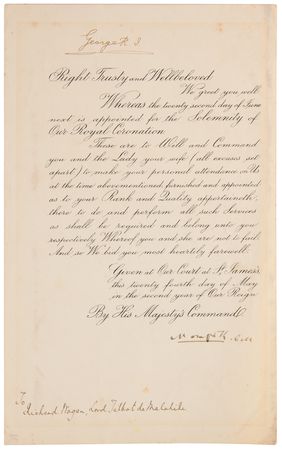 George R. I.
Right Trusty and Wellbeloved
We greet you well
Whereas the twenty second day of June
next is appointed for the Solemnity of
Our Royal Coronation
These are to Will and Command
you and the Lady your wife (all excuses set
apart) to make your personal attendance on Us
at the time abovementioned, furnished and appointed
as to your Rank and Quality appertaineth,
there to do and perform all such Services
as shall be required and belong unto you
respectively Whereof you and she are not to fail
And so We bid you most heartily farewell.
Given at Our Court at St. James's,
this twenty fourth day of May
in the second year of Our Reign
By His Majesty's Command
To,
Richard Wogan, Lord Talbot de Malahide